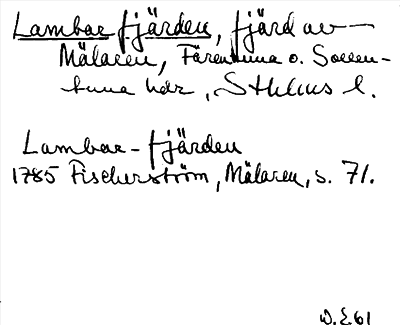 Lambarfjärden, fjärd av
Mälaren, Färentuna o. Sollen-
tuna hdr, Sthlms l.
Lambar-fjärden
1785 Fischerström, Mälaren, s. 71.
W.E 61